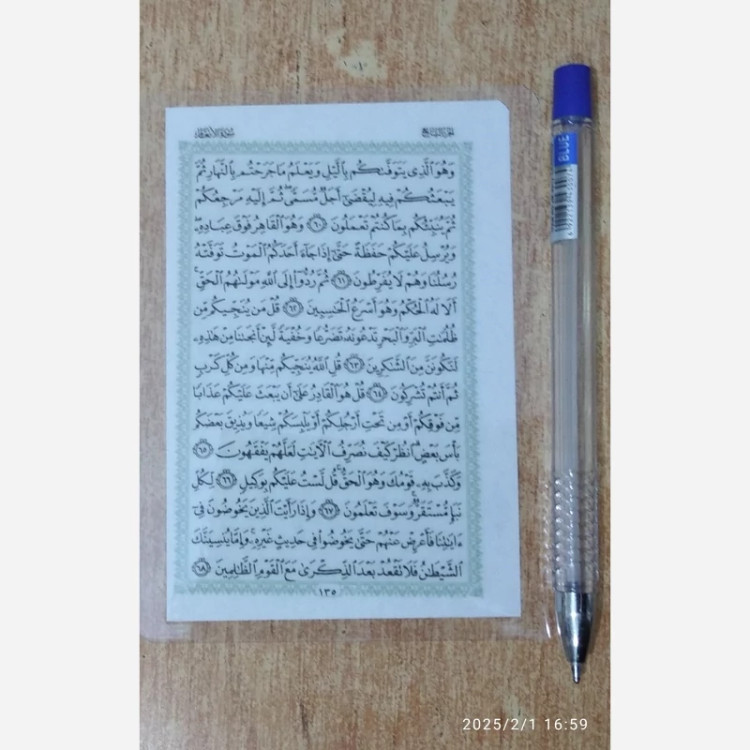 سورة الأنعام
الجزء السابع
وَهُوَ ٱلَّذِى يَتَوَفَّىٰكُم بِٱلَّيْلِ وَيَعْلَمُ مَا جَرَحْتُم بِٱلنَّهَارِ ثُمَّ
يَبْعَثُكُمْ فِيهِ لِيُقْضَىٰٓ أَجَلٌ مُّسَمًّى ۖ ثُمَّ إِلَيْهِ مَرْجِعُكُمْ
ثُمَّ يُنَبِّئُكُم بِمَا كُنتُمْ تَعْمَلُونَ ٦٠ وَهُوَ ٱلْقَاهِرُ فَوْقَ عِبَادِهِۦ ۖ
وَيُرْسِلُ عَلَيْكُمْ حَفَظَةً حَتَّىٰٓ إِذَا جَآءَ أَحَدَكُمُ ٱلْمَوْتُ تَوَفَّتْهُ
رُسُلُنَا وَهُمْ لَا يُفَرِّطُونَ ٦١ ثُمَّ رُدُّوٓا۟ إِلَى ٱللَّهِ مَوْلَىٰهُمُ ٱلْحَقِّ ۚ
أَلَا لَهُ ٱلْحُكْمُ وَهُوَ أَسْرَعُ ٱلْحَٰسِبِينَ ٦٢ قُلْ مَن يُنَجِّيكُم مِّن
ظُلُمَٰتِ ٱلْبَرِّ وَٱلْبَحْرِ تَدْعُونَهُۥ تَضَرُّعًا وَخُفْيَةً لَّئِنْ أَنجَىٰنَا مِنْ هَٰذِهِۦ
لَنَكُونَنَّ مِنَ ٱلشَّٰكِرِينَ ٦٣ قُلِ ٱللَّهُ يُنَجِّيكُم مِّنْهَا وَمِن كُلِّ كَرْبٍ
ثُمَّ أَنتُمْ تُشْرِكُونَ ٦٤ قُلْ هُوَ ٱلْقَادِرُ عَلَىٰٓ أَن يَبْعَثَ عَلَيْكُمْ عَذَابًا
مِّن فَوْقِكُمْ أَوْ مِن تَحْتِ أَرْجُلِكُمْ أَوْ يَلْبِسَكُمْ شِيَعًا وَيُذِيقَ بَعْضَكُم
بَأْسَ بَعْضٍ ۗ ٱنظُرْ كَيْفَ نُصَرِّفُ ٱلْءَايَٰتِ لَعَلَّهُمْ يَفْقَهُونَ ٦٥
وَكَذَّبَ بِهِۦ قَوْمُكَ وَهُوَ ٱلْحَقُّ ۚ قُل لَّسْتُ عَلَيْكُم بِوَكِيلٍ ٦٦ لِّكُلِّ
نَبَإٍ مُّسْتَقَرٌّ ۚ وَسَوْفَ تَعْلَمُونَ ٦٧ وَإِذَا رَأَيْتَ ٱلَّذِينَ يَخُوضُونَ فِىٓ
ءَايَٰتِنَا فَأَعْرِضْ عَنْهُمْ حَتَّىٰ يَخُوضُوا۟ فِى حَدِيثٍ غَيْرِهِۦ ۚ وَإِمَّا يُنسِيَنَّكَ
ٱلشَّيْطَٰنُ فَلَا تَقْعُدْ بَعْدَ ٱلذِّكْرَىٰ مَعَ ٱلْقَوْمِ ٱلظَّٰلِمِينَ ٦٨
١٣٥
BLUE
2025/2/1 16:59